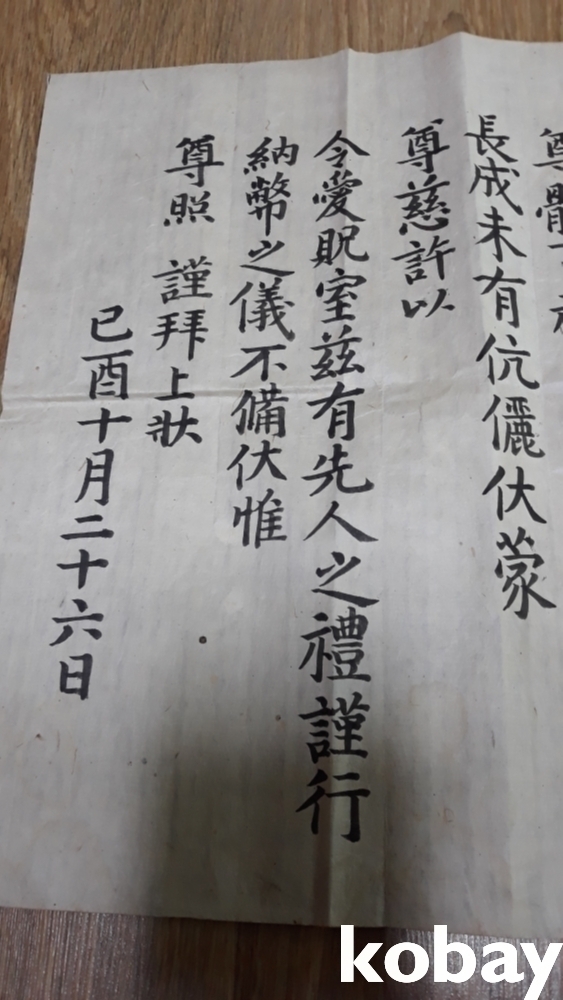 尊體
長成未有伉儷伏蒙
尊慈許以
令愛貺室玆有先人之禮謹行
納幣之儀不備伏惟
尊照 謹拜上狀
已酉十月二十六日
kobay